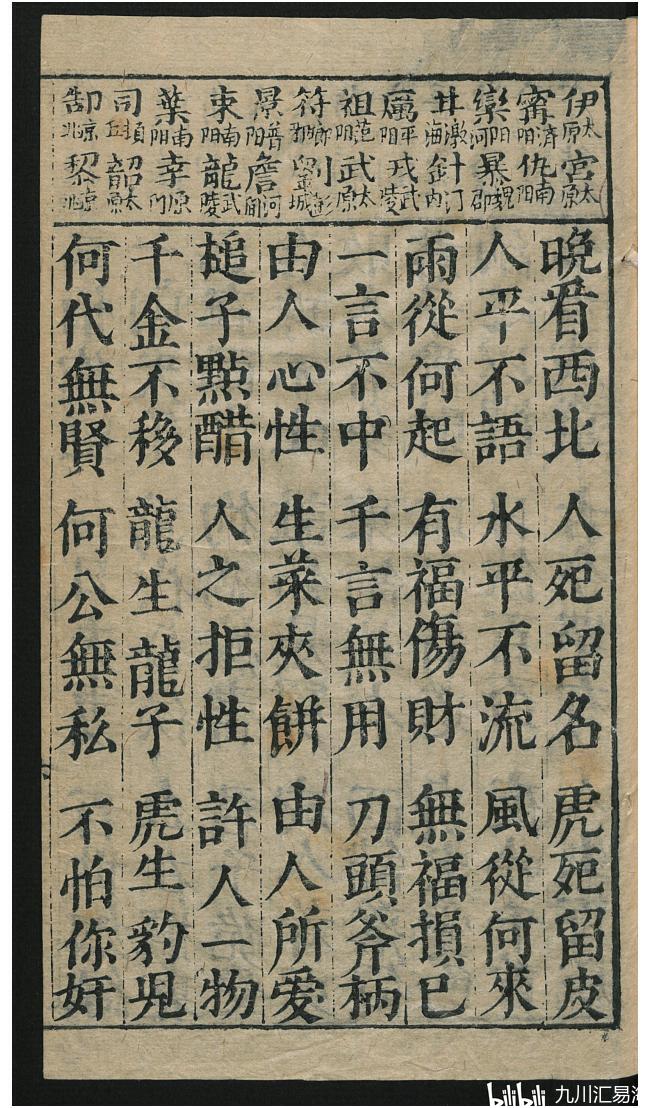 伊太原宮太原
甯濟陽仇南陽
欒暴魏郡
井渤海針
厲平陽戎武陵
祖范陽武太原
符劉彭城
景晉陽詹河間
束南陽龍武陵
葉南陽幸
司頓丘韶太原
郜京兆黎京兆
晚看西北 人死留名 虎死留皮
人平不語 水平不流 風從何來
雨從何起 有福傷財 無福損己
一言不中 千言無用 刀頭斧柄
由人心性 生菜夾餅 由人所愛
槌子點醋 人之拒性 許人一物
千金不移 龍生龍子 虎生豹兒
何代無賢 何公無私 不怕你奸
bilibili 九川汇易